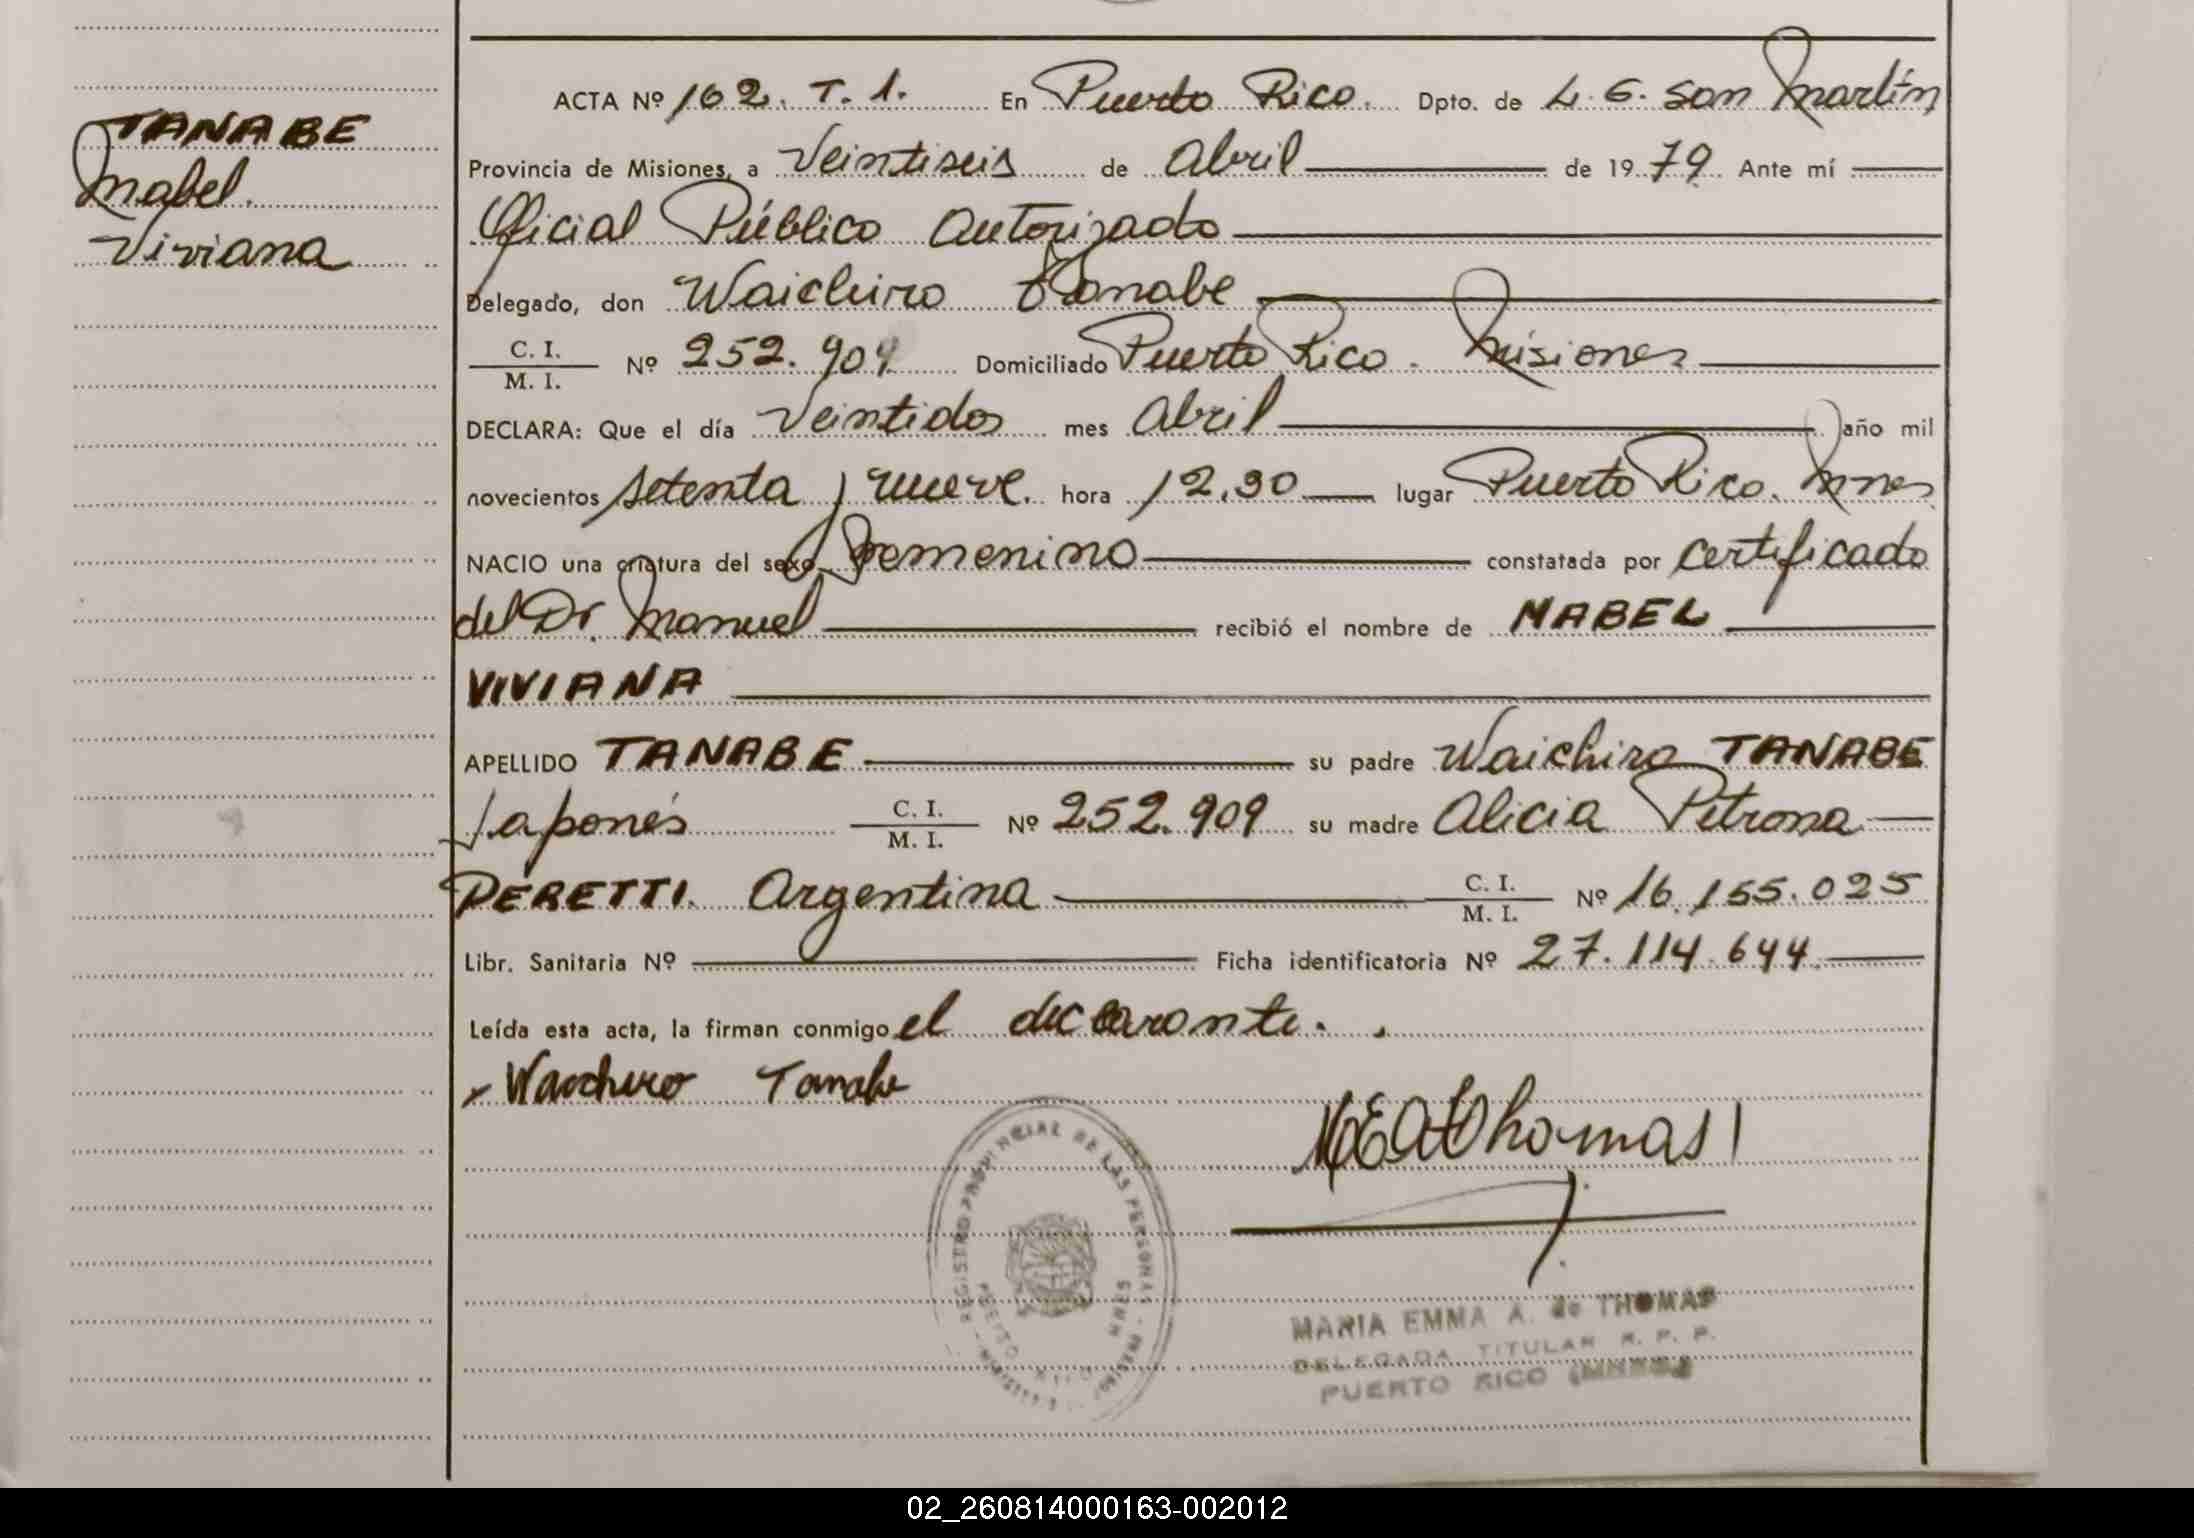 TANABE
Mabel
Viviana
ACTA Nº 162. T. 1. En Puerto Rico. Dpto. de L. G. San Martín
Provincia de Misiones, a Veintiseis de Abril de 1979 Ante mí
Oficial Público Autorizado
Delegado, don Waichiro Tanabe
C. I. / M. I. Nº 252.909 Domiciliado Puerto Rico. Misiones
DECLARA: Que el día Veintidos mes Abril año mil
novecientos setenta y nueve. hora 12,30 lugar Puerto Rico. Mnes
NACIO una criatura del sexo Femenino constatada por certificado
del Dr. Manuel recibió el nombre de MABEL
VIVIANA
APELLIDO TANABE su padre Waichiro TANABE
Japonés C. I. / M. I. Nº 252.909 su madre Alicia Petrona
PERETTI. Argentina C. I. / M. I. Nº 16.155.025
Libr. Sanitaria Nº Ficha identificatoria Nº 27.114.644
Leída esta acta, la firman conmigo el declarante.
x Waichiro Tanabe
MEA de Thomas
REGISTRO PROVINCIAL DE LAS PERSONAS - MISIONES
PUERTO RICO
MARIA EMMA A. de THOMAS
DELEGADA TITULAR R. P. P.
PUERTO RICO (MNES.)
02_260814000163-002012